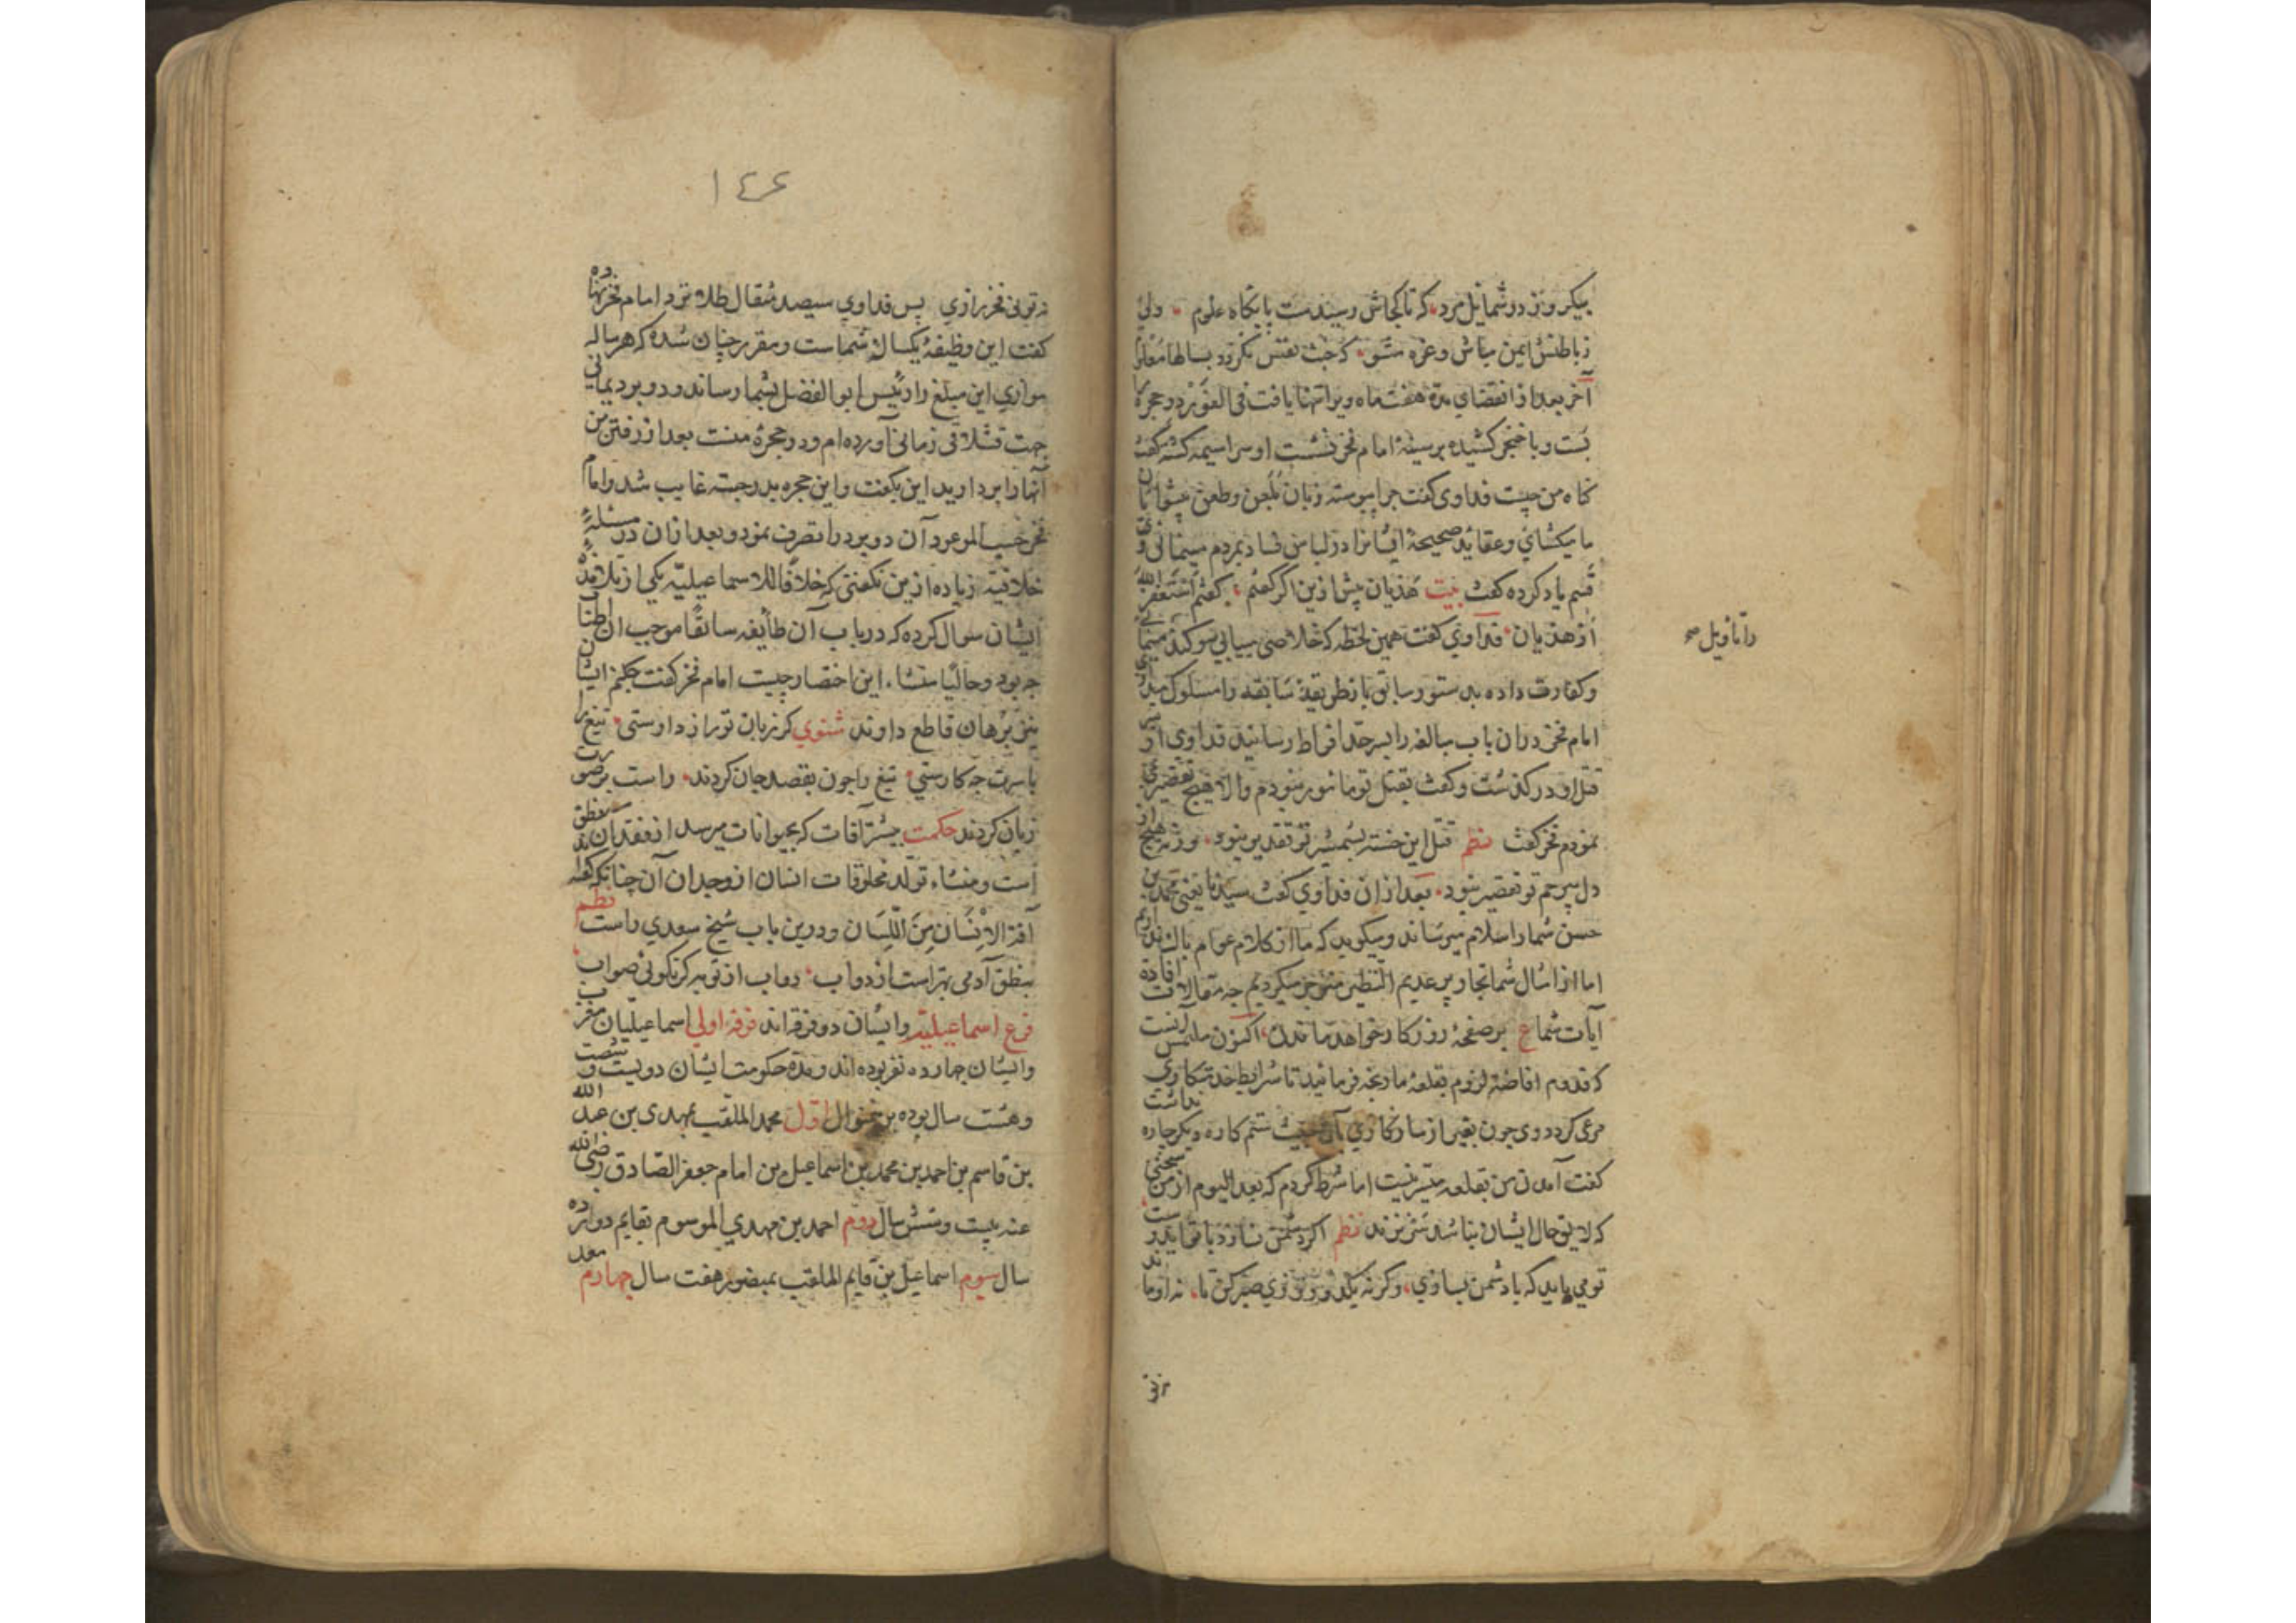 بیکروز در شمایل مرد، که تا کجاش رسیدست پایگاه علوم، ولی
ز باطنش ایمن مباش و غره مشو، که خبث نفس نگردد بسالها معلوم
آخر بعد از انقضای مدة هفت ماه ویرا تنها یافت فی الفور در حجره را
بست و با خنجر کشیده بر سینهٔ امام فخر نشست او سراسیمه کشته گفت
گناه من چیست فداوی گفت چرا پیوسته زبان بلعن و طعن پیشوایان
ما میکشای و عقاید صحیحهٔ ایشانرا در لباس فساد بمردم مینمائی
قسم یاد کرده گفت بیت هذیان پیش ازین اگر گفتم، گفتم استغفر الله
از هذیان، فداوی گفت همین لحظه که خلاصی بیابی سوکند
را تاویل صح
و کفارت داده بدستور سابق باز طریقهٔ سابقه را مسلوک میداری
امام فخر دران باب مبالغه را بسرحد افراط رسانید فداوی از سر
قتل او در کذشت و گفت بقتل تو مامور نبودم والا هیچ تقصیری
نمودم فخر گفت نظم قتل این خسته بشمشیر تو تقدیر نبود، ورنه هیچ از
دل بیرحم تو تقصیر نبود، بعد ازان فداوی گفت سیدنا یعنی محمد بن
حسن شما را سلام میرساند و میکوید که ما از کلام عوام باک نداریم
اما از امثال شما نحاریر عدیم النظیر متوحش میکردیم چه مقالات افادة
آیات شما ع بر صفحهٔ روزکار خواهد ماندن، اکنون ملتمس آنست
که قدوم افاضه لزوم بقلعهٔ ما رنجه فرمائید تا شرایط خدمتکاری
مرعی کردد وی چون بغیر از سازکاری بآن ستم کاره دیکر چاره نداشت
کفت آمدن من بقلعه میسر نیست اما شرط کردم که بعد الیوم از من سخنی
که لایق حال ایشان نباشد سر نزند نظم اکر دشمن نسازد با تو ایدوست
تو می باید که با دشمن بسازی، وکرنه یکدو روزی صبر کن تا، نه او ماند
نه تو
١٤٦
نه تونی فخر رازی پس فداوی سیصد مثقال طلا نزد امام فخر نهاده
کفت این وظیفهٔ یکسالهٔ شماست و مقرر چنان شده که هر ساله
موازی این مبلغ را رئیس ابو الفضل بشما رساند و دو برد یمانی
جهت قشلاقی زمانی آورده ام و در حجرهٔ منست بعد از رفتن من
آنها را بردارید این بکفت و ازین حجره بدر جسته غایب شد و امام
فخر حسب الموعود آن دو برد را تصرف نمود و بعد ازان در مسئلهٔ
خلافیه زیاده ازین نکفتی که خلافا للاسماعیلیه یکی از تلامذهٔ
ایشان سوال کرده که در باب آن طایفه سابقا موجب اطناب
چه بود و حالیا منشاء این اختصار چیست امام فخر کفت چکنم ایشان
نیز برهان قاطع دارند مثنوی کر زبان تو رازدارستی، تیغ را
با سرت چه کارستی، تیغ را چون بقصد جان کردند، راست بر صورت
زبان کردند حکمت بیشتر آفات که بحیوانات میرسد از فقدان نطق
است و منشاء تولد مخلوقات انسان از وجدان آن چنانکه کفته اند
آفة الانسان من اللسان و درین باب شیخ سعدی راست نظم
بنطق آدمی بهتر است از دواب، دواب از تو به کر نکوئی صواب
فرع اسماعیلیه و ایشان دو فرقه اند فرقه اولی اسماعیلیان مغرب
و ایشان چهارده نفر بوده اند و مدة حکومت ایشان دویست و شصت
و هشت سال بوده برین منوال اول محمد الملقب بمهدی بن عبد الله
بن قاسم بن احمد بن محمد بن اسماعیل بن امام جعفر الصادق رضی الله
عنه بیست و شش سال دوم احمد بن مهدی الموسوم بقایم دوازده
سال سیوم اسماعیل بن قایم الملقب بمنصور هفت سال چهارم معد